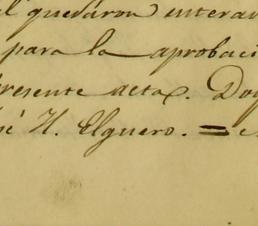 l quedaron entera
para la aprobaci
resente acta. Do
sé N. Elguero. =